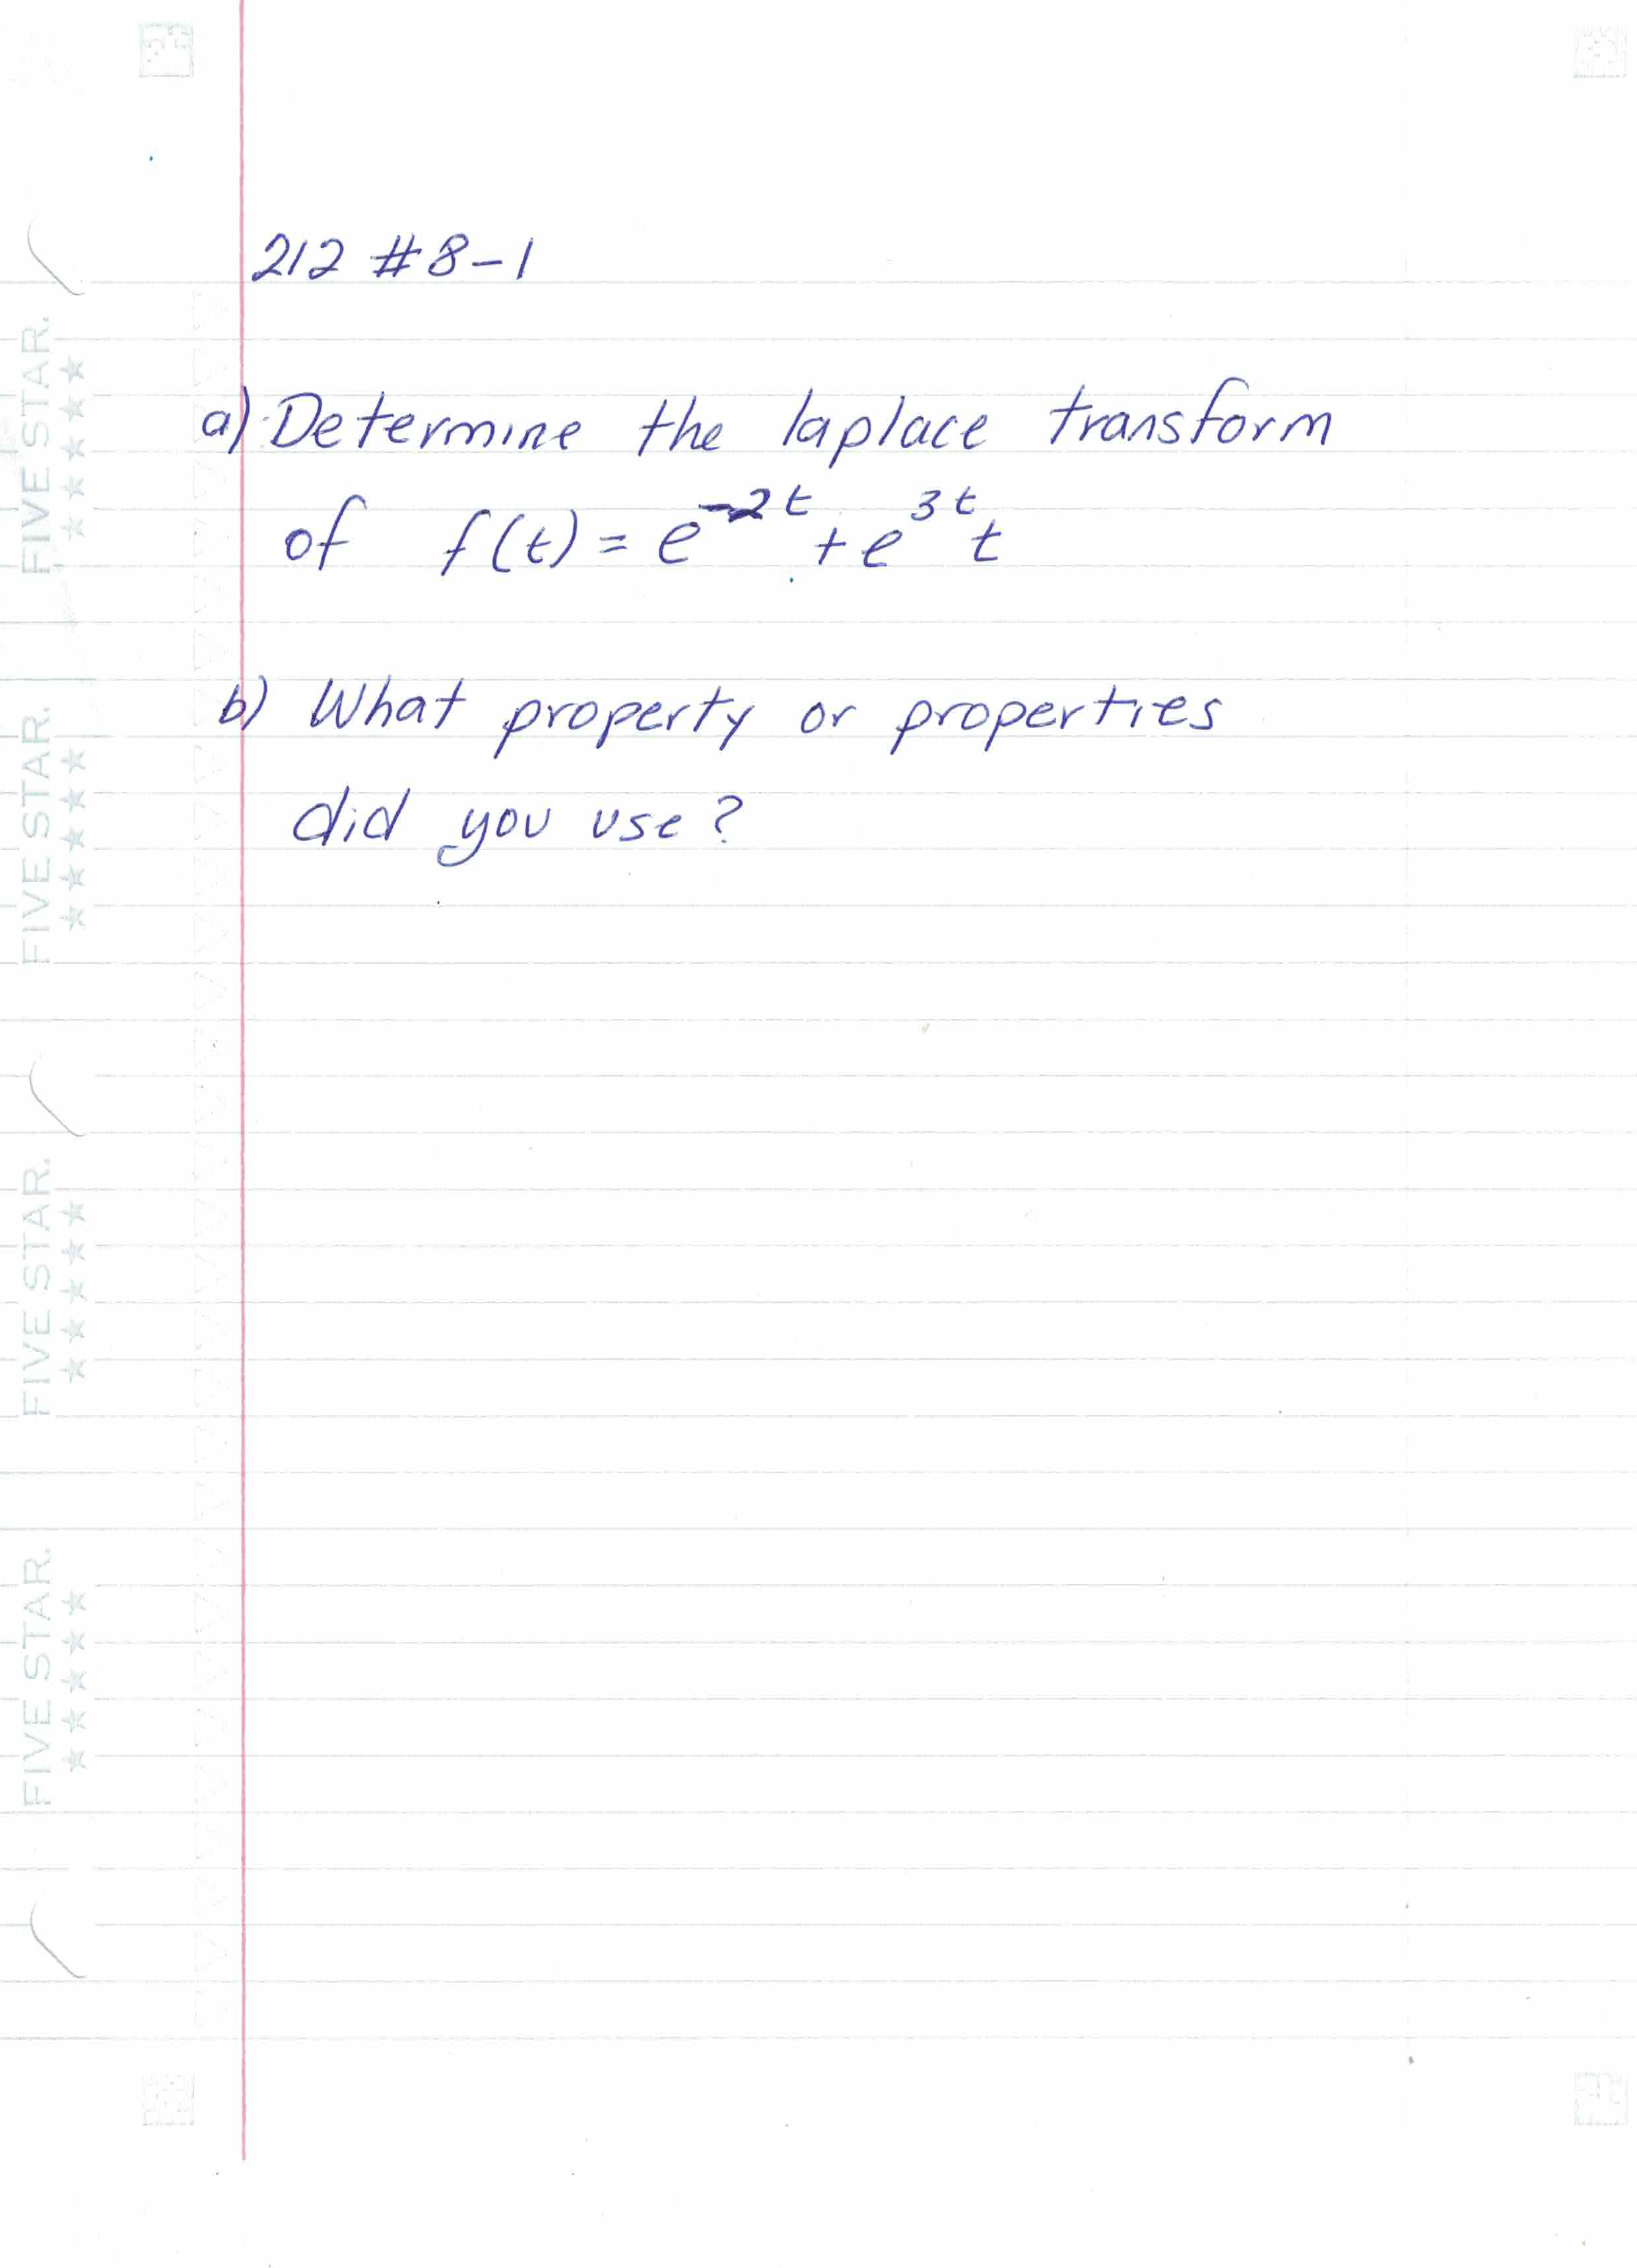 212 #8-1
a) Determine the laplace transform
of f(t) = e^{-2t} + e^{3t} t
b) What property or properties
did you use?
FIVE STAR.
FIVE STAR.
FIVE STAR.
FIVE STAR.